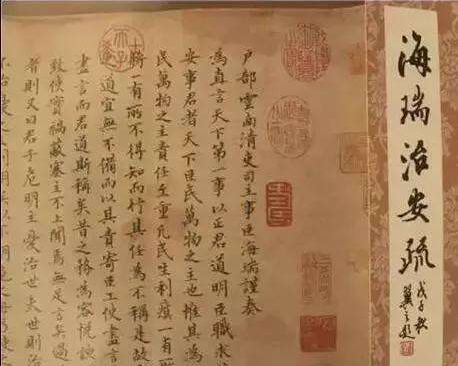 海瑞治安疏
戊子秋
戶部雲南清吏司主事臣海瑞謹奏
為直言天下第一事以正君道明臣職求
安事君者天下臣民萬物之主也惟其為
民萬物之主責任至重凡民生利瘼一有
將一有所不得知而行其任為不稱是故
道宜無不備而以其責寄臣工使盡言
盡言而君道斯稱矣昔之務為容悅諛
致使實禍蔽塞主不上聞焉無足言矣過
者則又曰君子危明主憂治世夫世則治